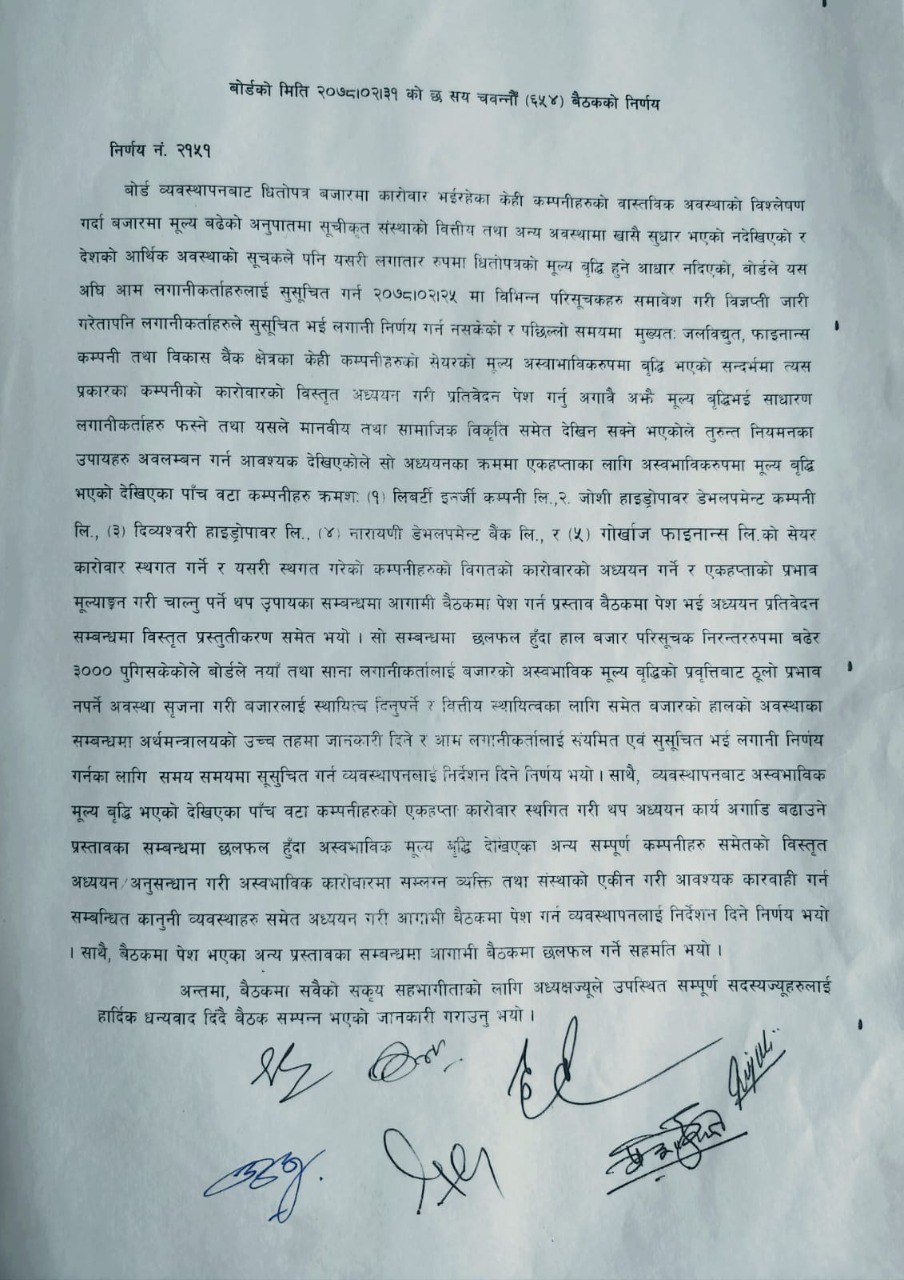 बोर्डको मिति २०७८।०२।३१ को छ सय चवन्नौं (६५४) बैठकको निर्णय
निर्णय नं. २१५१
बोर्ड व्यवस्थापनबाट धितोपत्र बजारमा कारोवार भईरहेका केही कम्पनीहरुको वास्तविक अवस्थाको विश्लेषण
गर्दा बजारमा मूल्य बढेको अनुपातमा सूचीकृत संस्थाको वित्तीय तथा अन्य अवस्थामा खासै सुधार भएको नदेखिएको र
देशको आर्थिक अवस्थाको सूचकले पनि यसरी लगातार रुपमा धितोपत्रको मूल्य वृद्धि हुने आधार नदिएको, बोर्डले यस
अघि आम लगानीकर्ताहरुलाई सुसूचित गर्न २०७८।०२।२५ मा विभिन्न परिसूचकहरु समावेश गरी विज्ञप्ती जारी
गरेतापनि लगानीकर्ताहरुले सुसूचित भई लगानी निर्णय गर्न नसकेको र पछिल्लो समयमा मुख्यतः जलविद्युत, फाइनान्स
कम्पनी तथा विकास बैंक क्षेत्रका केही कम्पनीहरुको सेयरको मूल्य अस्वाभाविकरुपमा वृद्धि भएको सन्दर्भमा त्यस
प्रकारका कम्पनीको कारोवारको विस्तृत अध्ययन गरी प्रतिवेदन पेश गर्नु अगावै अझै मूल्य वृद्धिभई साधारण
लगानीकर्ताहरु फस्ने तथा यसले मानवीय तथा सामाजिक विकृति समेत देखिन सक्ने भएकोले तुरुन्त नियमनका
उपायहरु अवलम्बन गर्न आवश्यक देखिएकोले सो अध्ययनका क्रममा एकहप्ताका लागि अस्वभाविकरुपमा मूल्य वृद्धि
भएको देखिएका पाँच वटा कम्पनीहरु क्रमशः (१) लिबर्टी इनर्जी कम्पनी लि.,२. जोशी हाइड्रोपावर डेभलपमेन्ट कम्पनी
लि., (३) दिव्यश्वरी हाइड्रोपावर लि., (४) नारायणी डेभलपमेन्ट बैंक लि., र (५) गोर्खाज फाइनान्स लि.को सेयर
कारोवार स्थगत गर्ने र यसरी स्थगत गरेको कम्पनीहरुको विगतको कारोवारको अध्ययन गर्ने र एकहप्ताको प्रभाव
मूल्याङ्कन गरी चाल्नु पर्ने थप उपायका सम्बन्धमा आगामी बैठकमा पेश गर्न प्रस्ताव बैठकमा पेश भई अध्ययन प्रतिवेदन
सम्बन्धमा विस्तृत प्रस्तुतीकरण समेत भयो । सो सम्बन्धमा छलफल हुँदा हाल बजार परिसूचक निरन्तररुपमा बढेर
३००० पुगिसकेकोले बोर्डले नयाँ तथा साना लगानीकर्तालाई बजारको अस्वभाविक मूल्य वृद्धिको प्रवृत्तिबाट ठूलो प्रभाव
नपर्ने अवस्था सृजना गरी बजारलाई स्थायित्व दिनुपर्ने र वित्तीय स्थायित्वका लागि समेत बजारको हालको अवस्थाका
सम्बन्धमा अर्थमन्त्रालयको उच्च तहमा जानकारी दिने र आम लगानीकर्तालाई संयमित एवं सुसूचित भई लगानी निर्णय
गर्नका लागि समय समयमा सूसुचित गर्न व्यवस्थापनलाई निर्देशन दिने निर्णय भयो । साथै, व्यवस्थापनबाट अस्वभाविक
मूल्य वृद्धि भएको देखिएका पाँच वटा कम्पनीहरुको एकहप्ता कारोवार स्थगित गरी थप अध्ययन कार्य अगाडि बढाउने
प्रस्तावका सम्बन्धमा छलफल हुँदा अस्वभाविक मूल्य बृद्धि देखिएका अन्य सम्पूर्ण कम्पनीहरु समेतको विस्तृत
अध्ययन/अनुसन्धान गरी अस्वभाविक कारोवारमा सम्लग्न व्यक्ति तथा संस्थाको एकीन गरी आवश्यक कारवाही गर्न
सम्बन्धित कानुनी व्यवस्थाहरु समेत अध्ययन गरी आगामी बैठकमा पेश गर्न व्यवस्थापनलाई निर्देशन दिने निर्णय भयो
। साथै, बैठकमा पेश भएका अन्य प्रस्तावका सम्बन्धमा आगामी बैठकमा छलफल गर्ने सहमति भयो ।
अन्तमा, बैठकमा सवैको सकृय सहभागीताको लागि अध्यक्षज्यूले उपस्थित सम्पूर्ण सदस्यज्यूहरुलाई
हार्दिक धन्यवाद दिँदै बैठक सम्पन्न भएको जानकारी गराउनु भयो ।